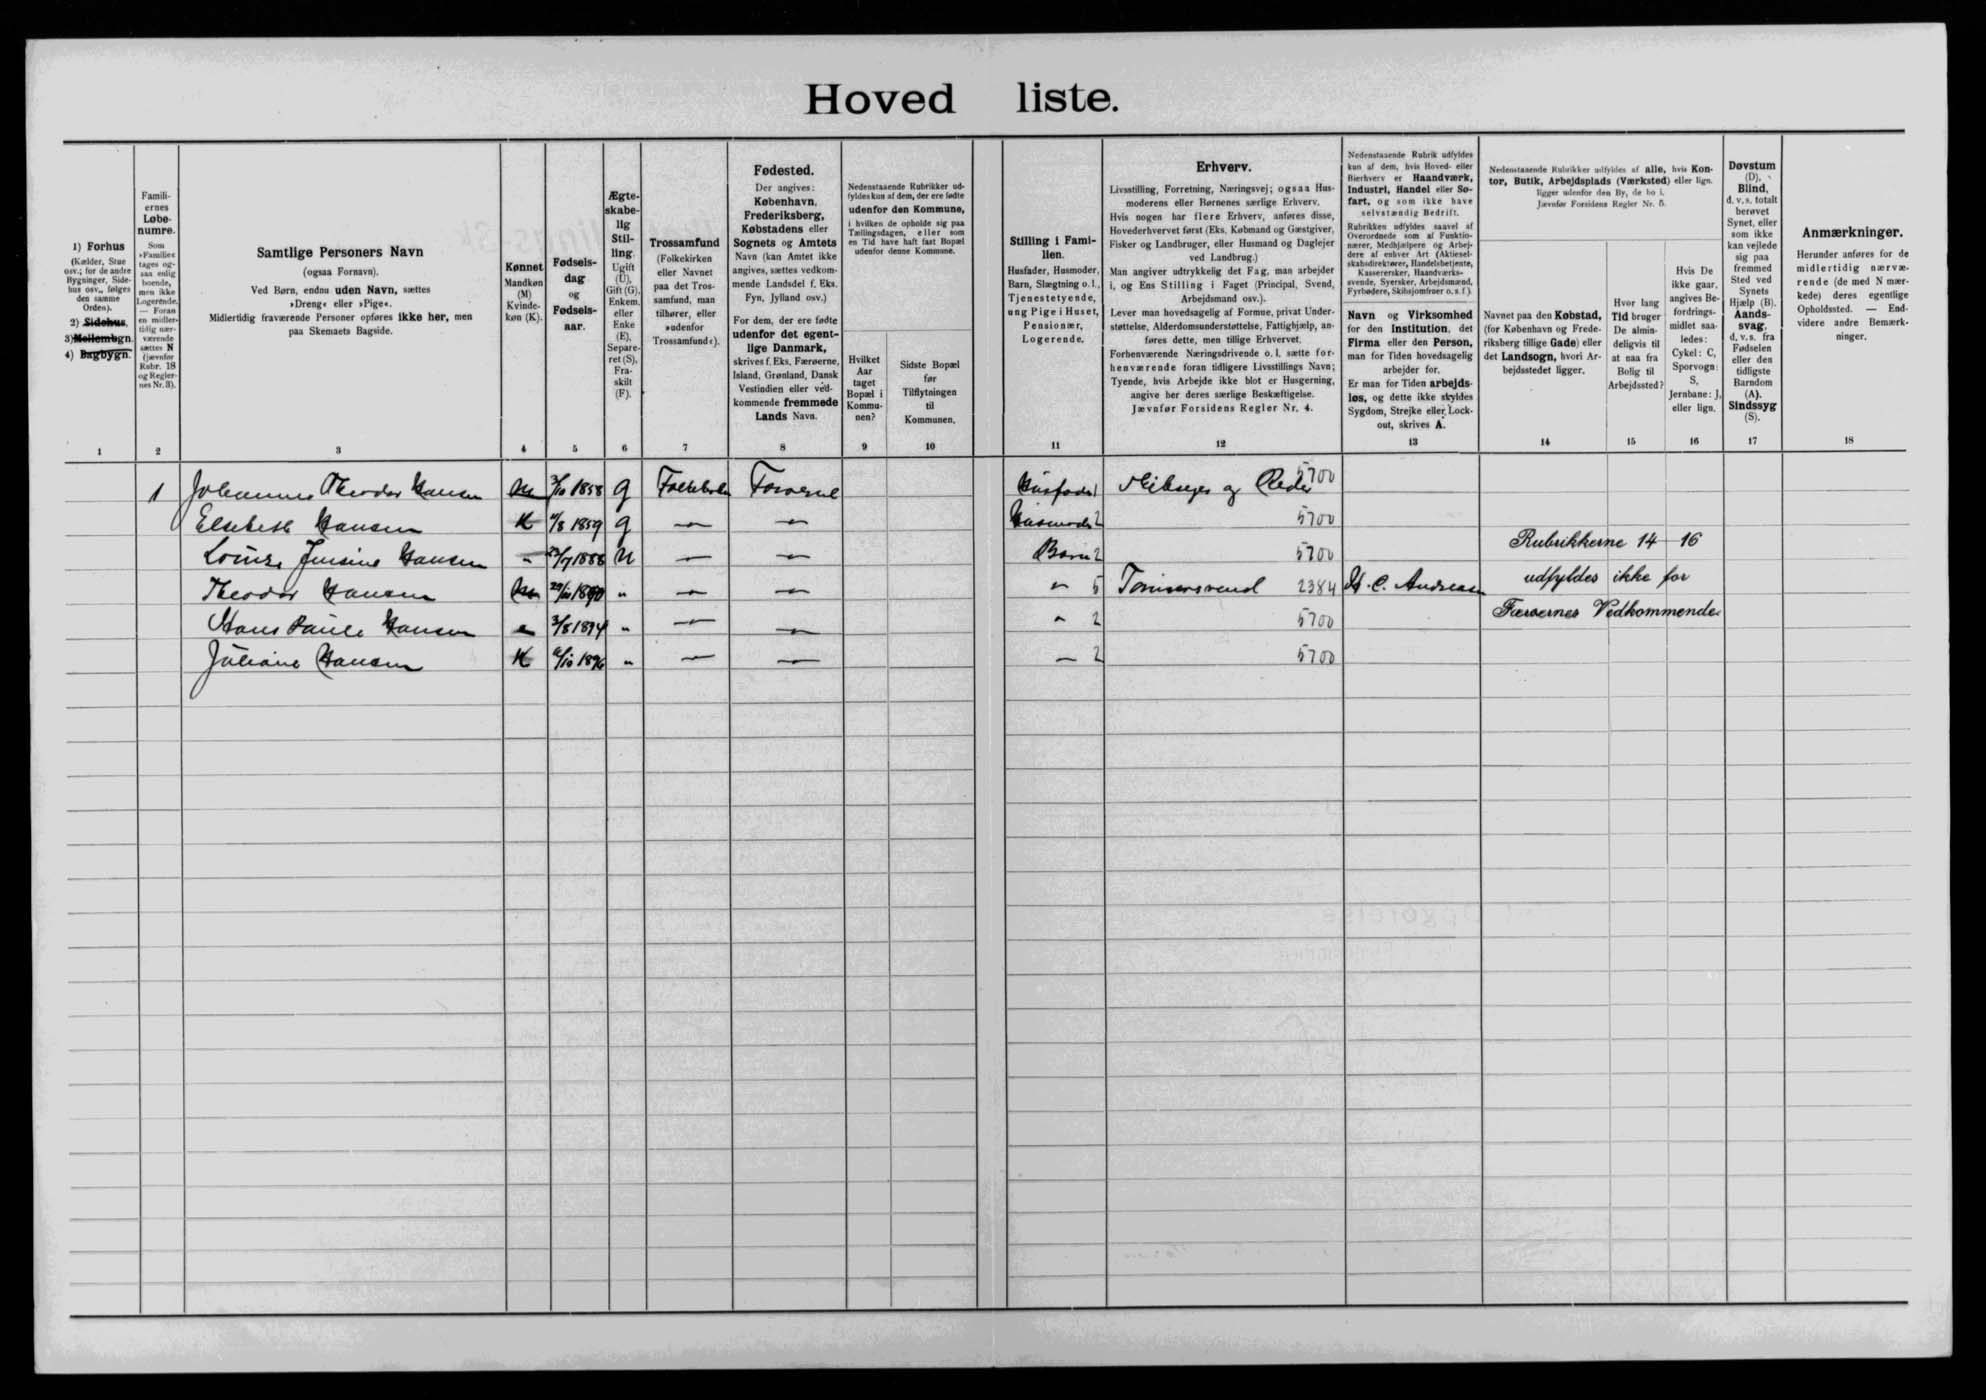 Hovedliste.
1) Forhus
(Kælder, Stue
osv.; for de andre
Bygninger, Side-
hus osv., følges
den samme
Orden).
2) Sidehus,
3) Mellembgn.
4) Bagbygn.
1
Famili-
ernes
Løbe-
numre.
Som
»Familie«
tages og-
saa enlig
boende,
men ikke
Logerende.
— Foran
en midler-
tidig nær-
værende
sættes N
(jævnfør
Rubr. 18
og Regler-
nes Nr. 3).
2
Samtlige Personers Navn
(ogsaa Fornavn).
Ved Børn, endnu uden Navn, sættes
»Dreng« eller »Pige«.
Midlertidig fraværende Personer opføres ikke her, men
paa Skemaets Bagside.
3
Kønnet
Mandkøn
(M)
Kvinde-
køn (K).
4
Fødsels-
dag
og
Fødsels-
aar.
5
Ægte-
skabe-
lig
Stil-
ling.
Ugift
(U),
Gift (G),
Enkem.
eller
Enke
(E),
Separe-
ret (S),
Fra-
skilt
(F).
6
Trossamfund
(Folkekirken
eller Navnet
paa det Tros-
samfund, man
tilhører, eller
»udenfor
Trossamfund«).
7
Fødested.
Der angives:
København,
Frederiksberg,
Købstadens eller
Sognets og Amtets
Navn (kan Amtet ikke
angives, sættes vedkom-
mende Landsdel f. Eks.
Fyn, Jylland osv.)
For dem, der ere fødte
udenfor det egent-
lige Danmark,
skrives f. Eks. Færøerne,
Island, Grønland, Dansk
Vestindien eller ved-
kommende fremmede
Lands Navn.
8
Nedenstaaende Rubrikker ud-
fyldes kun af dem, der ere fødte
udenfor den Kommune,
i hvilken de opholde sig paa
Tællingsdagen, eller som
en Tid have haft fast Bopæl
udenfor denne Kommune.
Hvilket
Aar
taget
Bopæl i
Kommu-
nen?
9
Sidste Bopæl
før
Tilflytningen
til
Kommunen.
10
Stilling i Fami-
lien.
Husfader, Husmoder,
Barn, Slægtning o. l.,
Tjenestetyende,
ung Pige i Huset,
Pensionær,
Logerende.
11
Erhverv.
Livsstilling, Forretning, Næringsvej; ogsaa Hus-
moderens eller Børnenes særlige Erhverv.
Hvis nogen har flere Erhverv, anføres disse,
Hovederhvervet først (Eks. Købmand og Gæstgiver,
Fisker og Landbruger, eller Husmand og Daglejer
ved Landbrug.)
Man angiver udtrykkelig det Fag, man arbejder
i, og Ens Stilling i Faget (Principal, Svend,
Arbejdsmand osv.).
Lever man hovedsagelig af Formue, privat Under-
støttelse, Alderdomsunderstøttelse, Fattighjælp, an-
føres dette, men tillige Erhvervet.
Forhenværende Næringsdrivende o. l. sætte for-
henværende foran tidligere Livsstillings Navn;
Tyende, hvis Arbejde ikke blot er Husgerning,
angive her deres særlige Beskæftigelse.
Jævnfør Forsidens Regler Nr. 4.
12
Nedenstaaende Rubrik udfyldes
kun af dem, hvis Hoved- eller
Bierhverv er Haandværk,
Industri, Handel eller Sø-
fart, og som ikke have
selvstændig Bedrift.
Rubrikken udfyldes saavel af
Overordnede som af Funktio-
nærer, Medhjælpere og Arbej-
dere af enhver Art (Aktiesel-
skabsdirektører, Handelsbetjente,
Kasserersker, Haandværks-
svende, Syersker, Arbejdsmænd,
Fyrbødere, Skibsjomfruer o. s. f.).
Navn og Virksomhed
for den Institution, det
Firma eller den Person,
man for Tiden hovedsagelig
arbejder for.
Er man for Tiden arbejds-
løs, og dette ikke skyldes
Sygdom, Strejke eller Lock-
out, skrives A.
13
Nedenstaaende Rubrikker udfyldes af alle, hvis Kon-
tor, Butik, Arbejdsplads (Værksted) eller lign.
ligger udenfor den By, de bo i.
Jævnfør Forsidens Regler Nr. 5.
Navnet paa den Købstad,
(for København og Frede-
riksberg tillige Gade) eller
det Landsogn, hvori Ar-
bejdsstedet ligger.
14
Hvor lang
Tid bruger
De almin-
deligvis til
at naa fra
Bolig til
Arbejdssted?
15
Hvis De
ikke gaar,
angives Be-
fordrings-
midlet saa-
ledes:
Cykel: C,
Sporvogn:
S,
Jernbane: J,
eller lign.
16
Døvstum
(D),
Blind,
d. v. s. totalt
berøvet
Synet, eller
som ikke
kan vejlede
sig paa
fremmed
Sted ved
Synets
Hjælp (B).
Aands-
svag,
d. v. s. fra
Fødselen
eller den
tidligste
Barndom
(A).
Sindssyg
(S).
17
Anmærkninger.
Herunder anføres for de
midlertidig nærvæ-
rende (de med N mær-
kede) deres egentlige
Opholdssted. — End-
videre andre Bemærk-
ninger.
18
1 Johannes Theodor Hansen M 3/10 1858 g Folkekirken Færøerne Husfader 1 Skibsejer og Reder 5700
Elsebeth Hansen K 4/8 1859 g — — Husmoder 2 5700
Louise Jensine Hansen " 23/7 1888 U — — Barn 2 5700
Theodor Hansen M 29/10 1890 " — — " 5 Tømrersvend 2384 H. C. Andreasen
Hans Pauli Hansen " 3/8 1894 " — — " 2 5700
Juliane Hansen K 6/10 1896 " — — — 2 5700
Rubrikkerne 14—16
udfyldes ikke for
Færøernes Vedkommende.